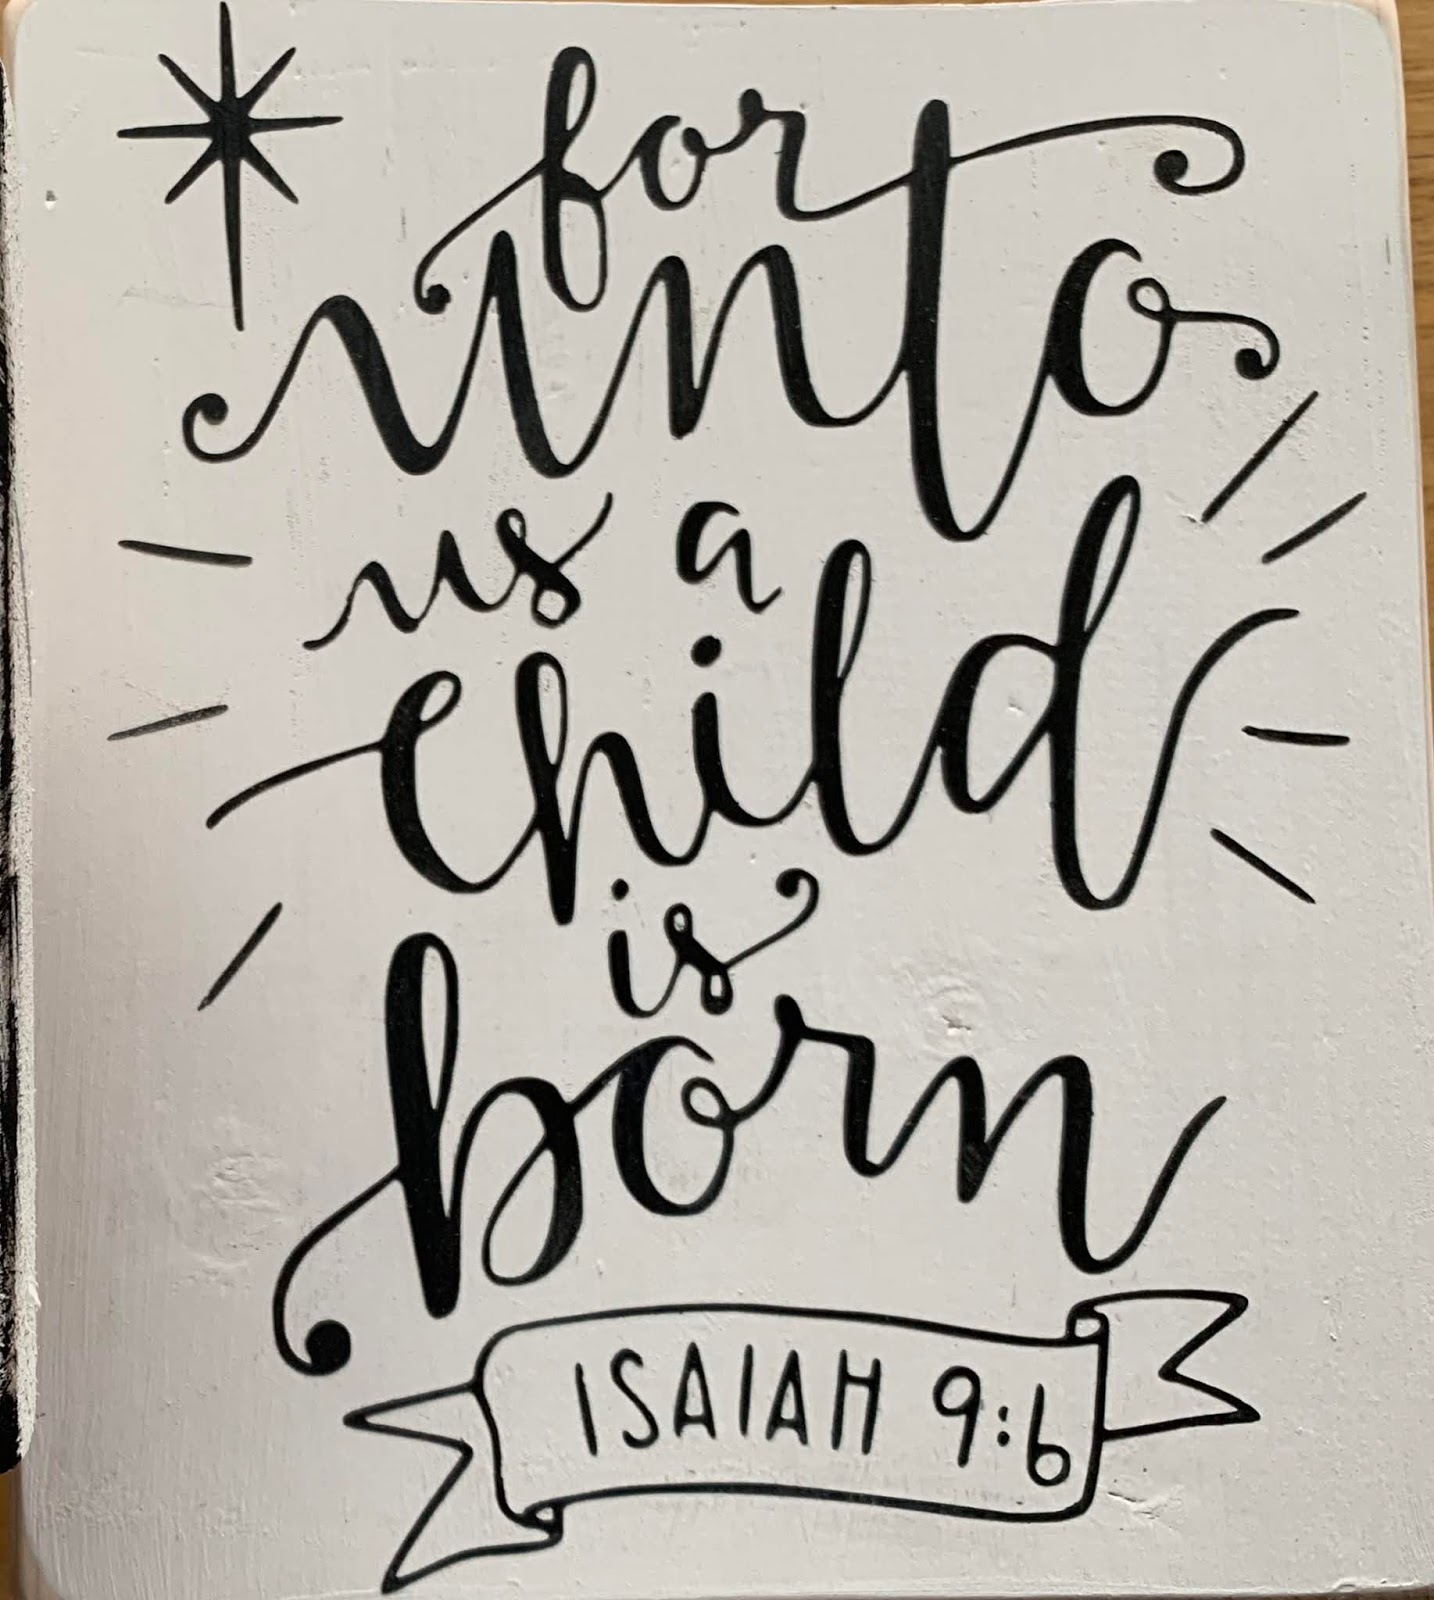 for
unto
us a
child
is
born
ISAIAH 9:6